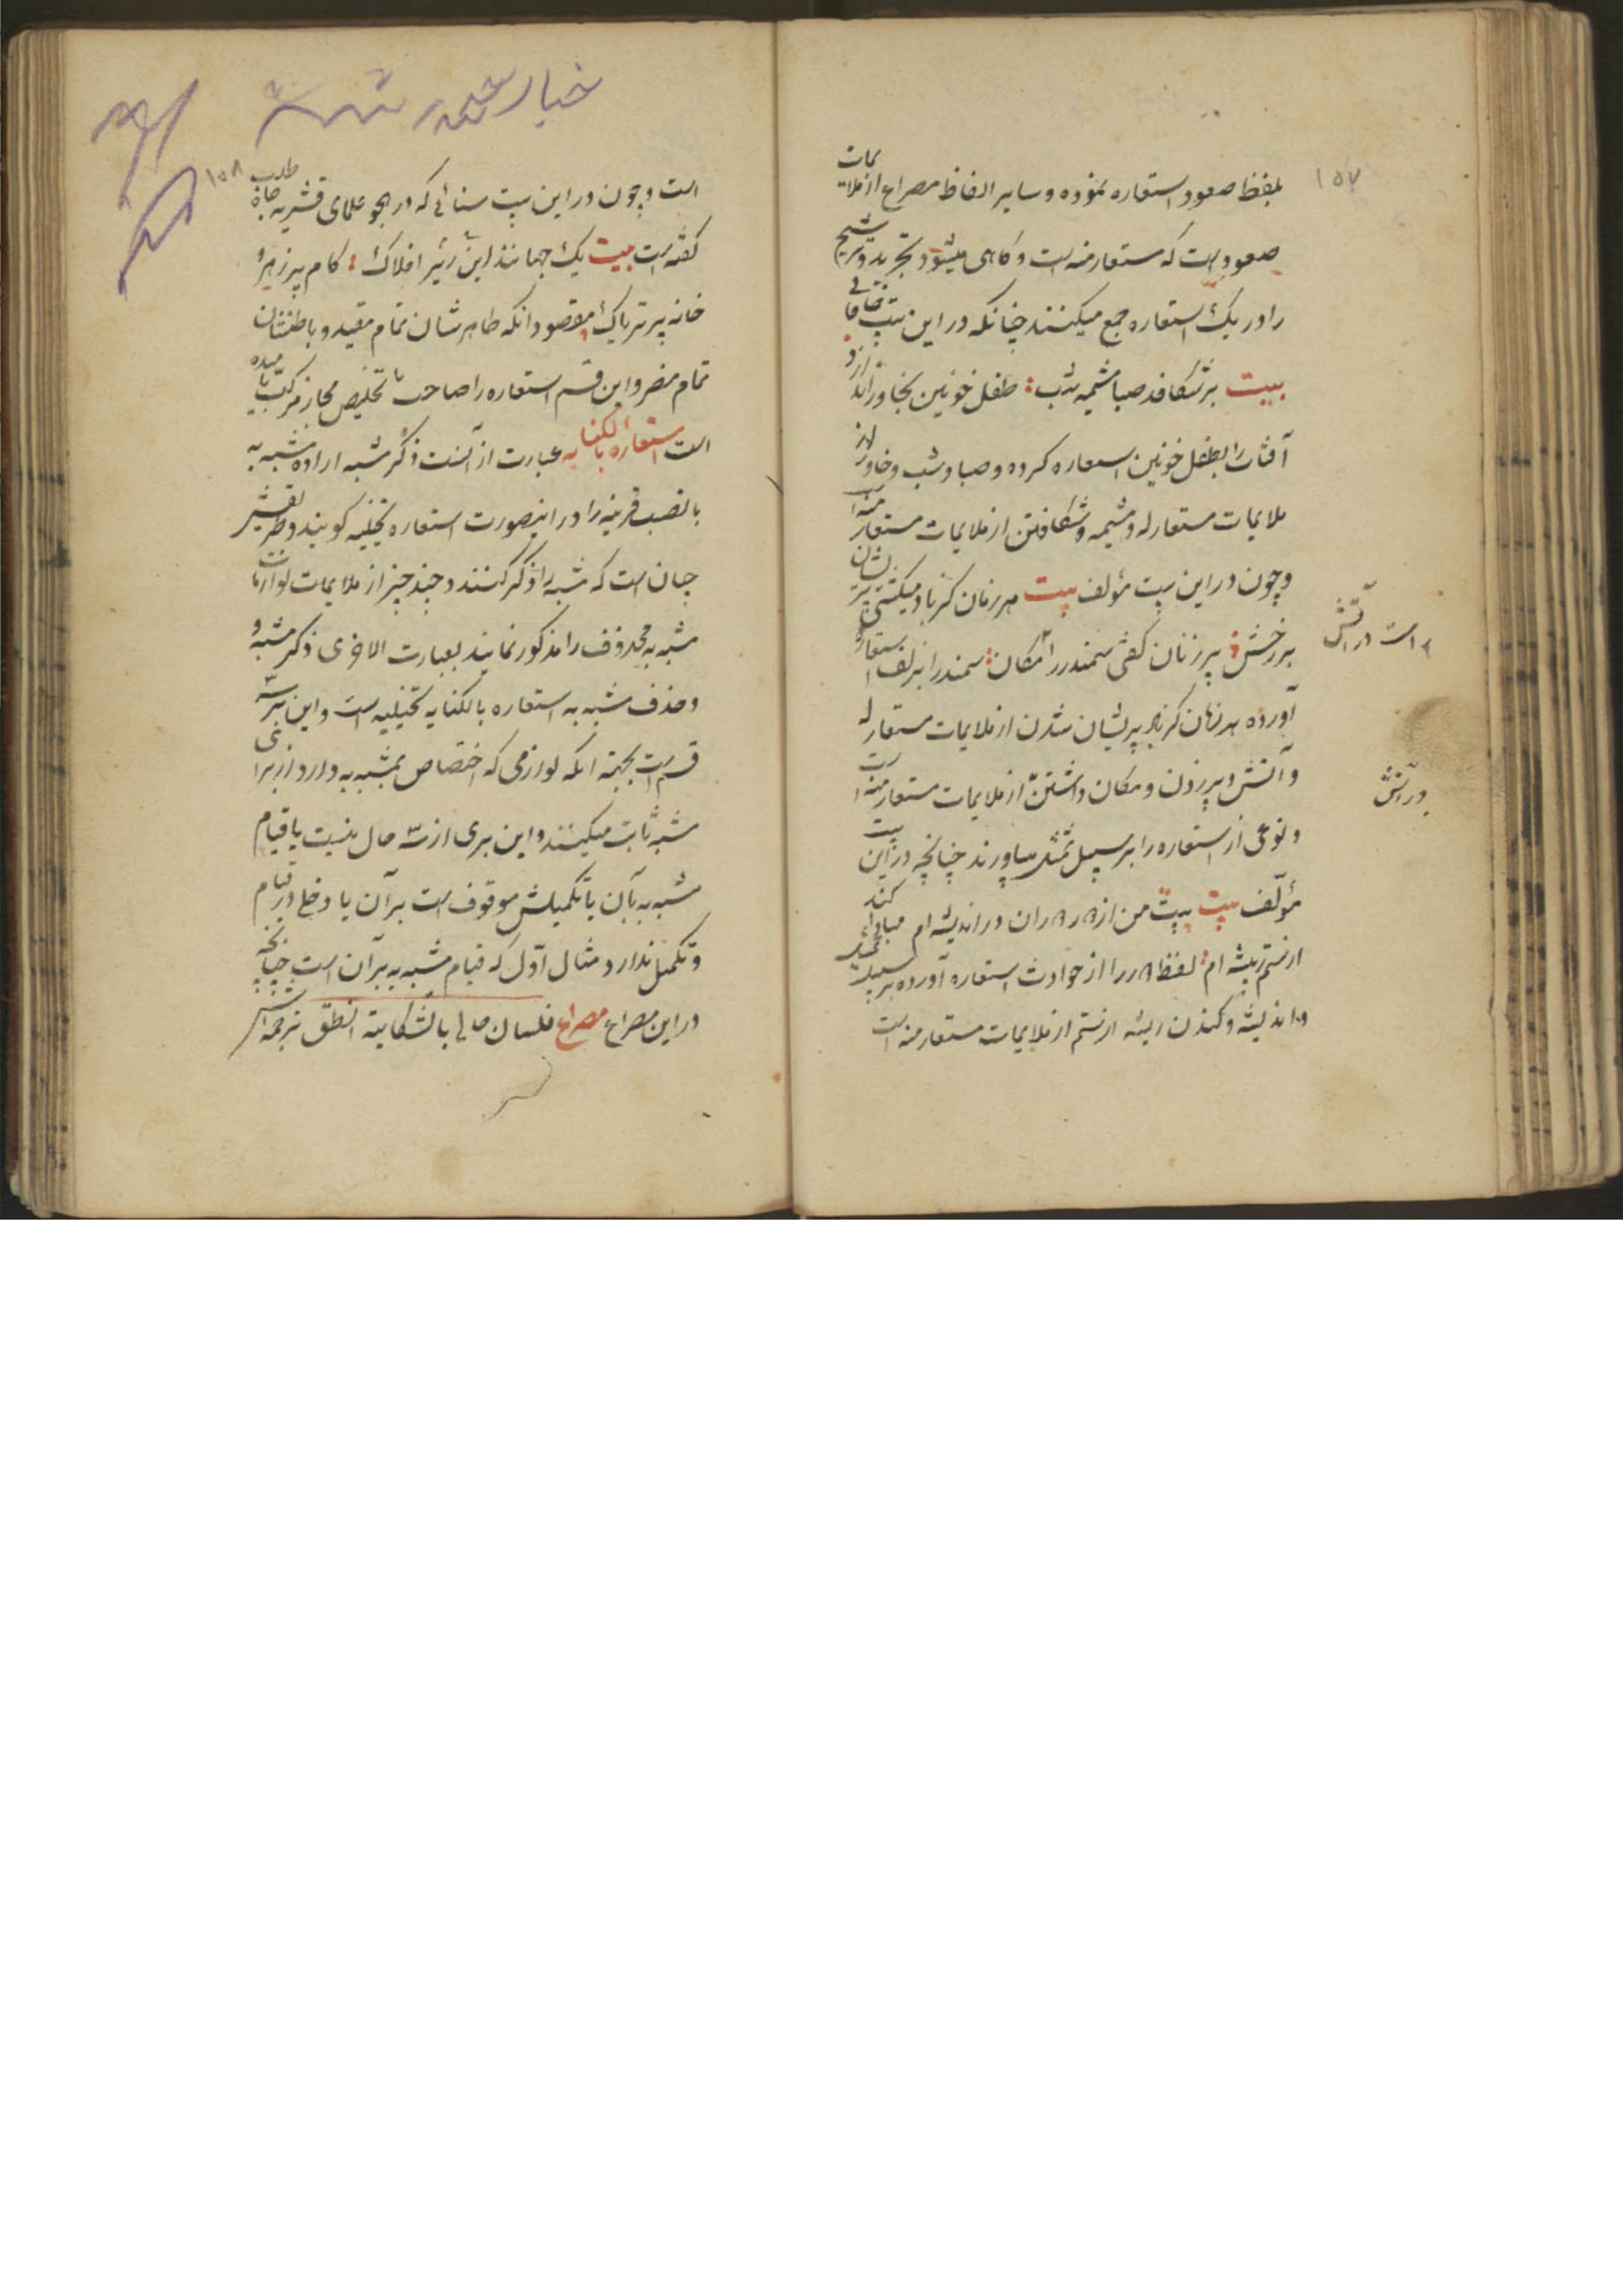 ۱۵۷
بلفظ صعود استعاره نموده و سایر الفاظ مصراع از ملایمات
صعود است که مستعار منه است و گاهی میشود تجرید و ترشیح
را در یک استعاره جمع میکنند چنانکه در این بیت خاقانی
بیت بر شکافد صبا مشیمه شب طفل خونین بخاور اندازد
آفتاب را بطفل خونین استعاره کرده و صبا و شب و خاور از
ملایمات مستعار له و مشیمه و شکافتن از ملایمات مستعار منه
و چون در این بیت مؤلف بیت هر زمان کز باد میگشتی پریشان
بر رخش پر زنان گفتی سمندر را مکان سمندر را بزلف استعاره
است در آتش
آورده هر زمان کز باد پریشان شدن از ملایمات مستعار له
و آتش و پر زدن و مکان داشتن از ملایمات مستعار منه است
در آتش
و نوعی از استعاره را بر سبیل تمثیل میاورند چنانچه در این بیت
مؤلف بیت من از دوران در اندیشه ام مبادا کند
از ستم ریشه ام لفظ را از حوادث استعاره آورده بر سبیل
و اندیشه و کندن ریشه از ستم از ملایمات مستعار منه است
۱۵۸
است و چون در این بیت سنائی که در هجو علمای قشریه جاه طلب
گفته است بیت یک جهانند این زیر افلاک کام پر زهر و
خانه پر تریاک مقصود آنکه ظاهرشان تمام مفید و باطنشان
تمام مضر و این قسم استعاره را صاحب تلخیص مجاز مرکب نامیده
است استعاره بالکنایه عبارت از آنست ذکر مشبه اراده مشبه به
با نصب قرینه را در اینصورت استعاره تخییلیه گویند و طریقش
چنان است که مشبه را ذکر کنند و چند چیز از ملایمات لوازمات
مشبه به محذوف را مذکور نمایند بعبارت الاخری ذکر مشبه و
و حذف مشبه به استعاره بالکنایه تخییلیه است و این بر سه
قسم است بجهة آنکه لوازمی که اختصاص بمشبه به دارد از برای
مشبه ثابت میکنند و این بری از سه حال نیست یا قیام
مشبه به بآن یا تکمیلش موقوف است بر آن یا دخلی در قیام
و تکمیل ندارد مثال اول که قیام مشبه به بر آن است چنانچه
در این مصراع مصراع فلسان حالی بالشکایة انطق ترجمه اش